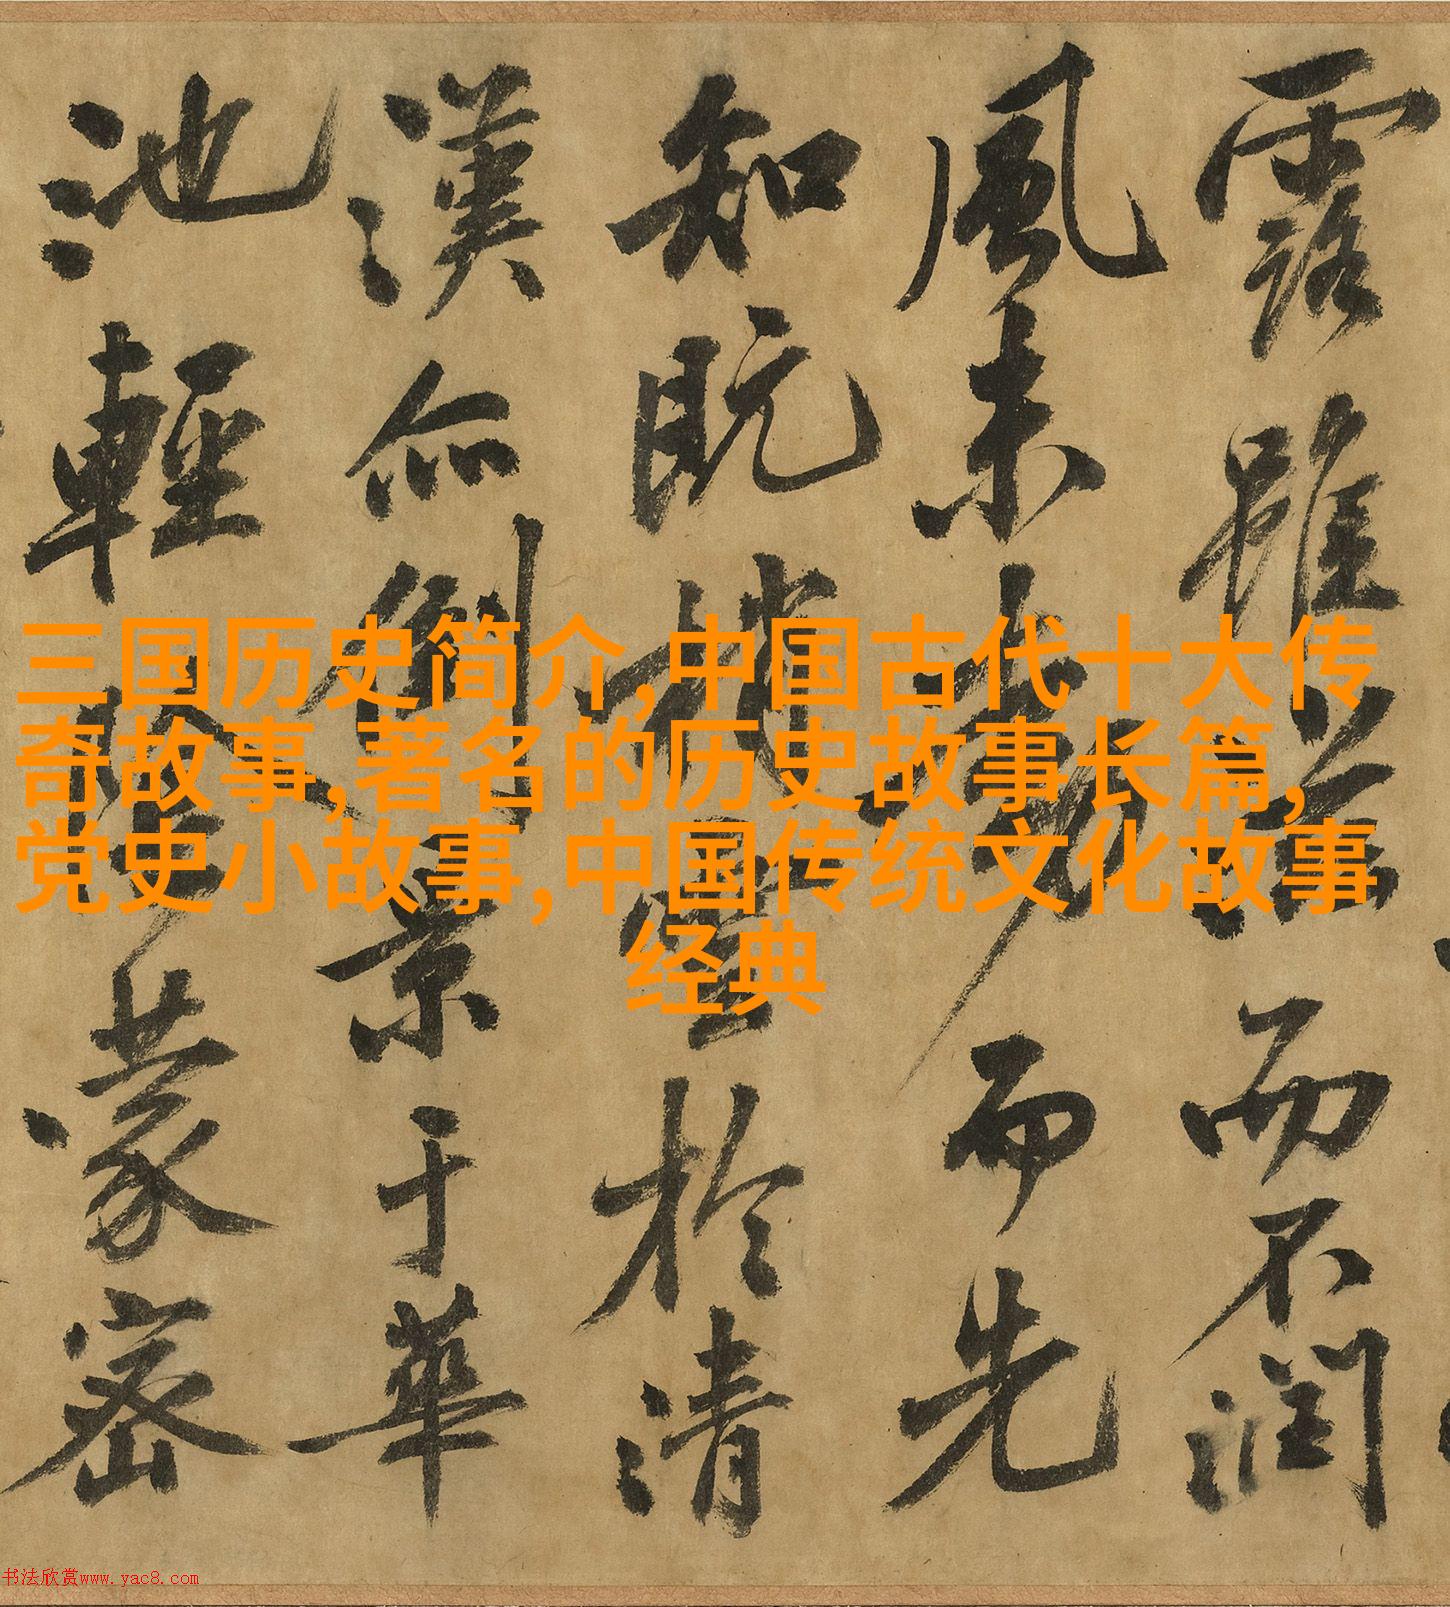 露雖而不潤
風未而先
知既雲於清
漢亦倒景于華
池輕陰蒙密
三国历史简介,中国古代十大传
奇故事,著名的历史故事长篇,
党史小故事,中国传统文化故事
经典
书法欣赏www.yac8.com